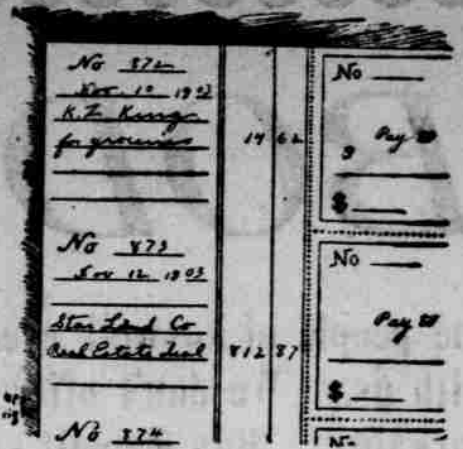 No 872
Nov 10 1903
K. Z. King
for groceries 14 62
No 873
Nov 12 1903
Star Land Co
Real Estate Deal 812 87
No 874
No
Pay
$
No
Pay
$
No